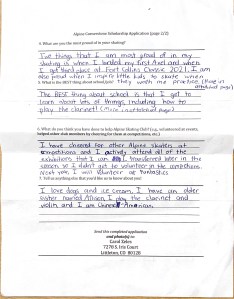 Alpine Cornerstone Scholarship Application (page 2/2)
4. What are you the most proud of in your skating?
The things that I am most proud of in my
skating is when I landed my first Axel and when
I got third place at Fort Collins Classic 2021. I am
also proud when I inspire little kids to skate when
5. What is the BEST thing about school/job? they watch me practice. (More in
attached page)
The BEST thing about school is that I get to
learn about lots of things, including how to
play the clarinet! (More in attached page)
6. What do you think you have done to help Alpine Skating Club? (e.g., volunteered in events,
helped other club members by cheering for them at competitions, etc.)
I have cheered for other Alpine skaters at
competitions and I actively attend all of the
exhibitions that I am in. I transferred later in the
season, so I didn't get to volunteer in the competitions.
Next year, I will volunteer at
7. Tell us anything else that you'd like us to know about you!
I love dogs and ice cream. I have an older
sister named I play the clarinet and
violin and I am American
Send this completed application
and photo(s) to:
Carol Zeles
7278 S. Iris Court
Littleton, CO 80128